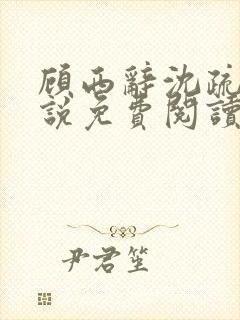 顾西辭沈疏
說免費閱讀
尹君笙